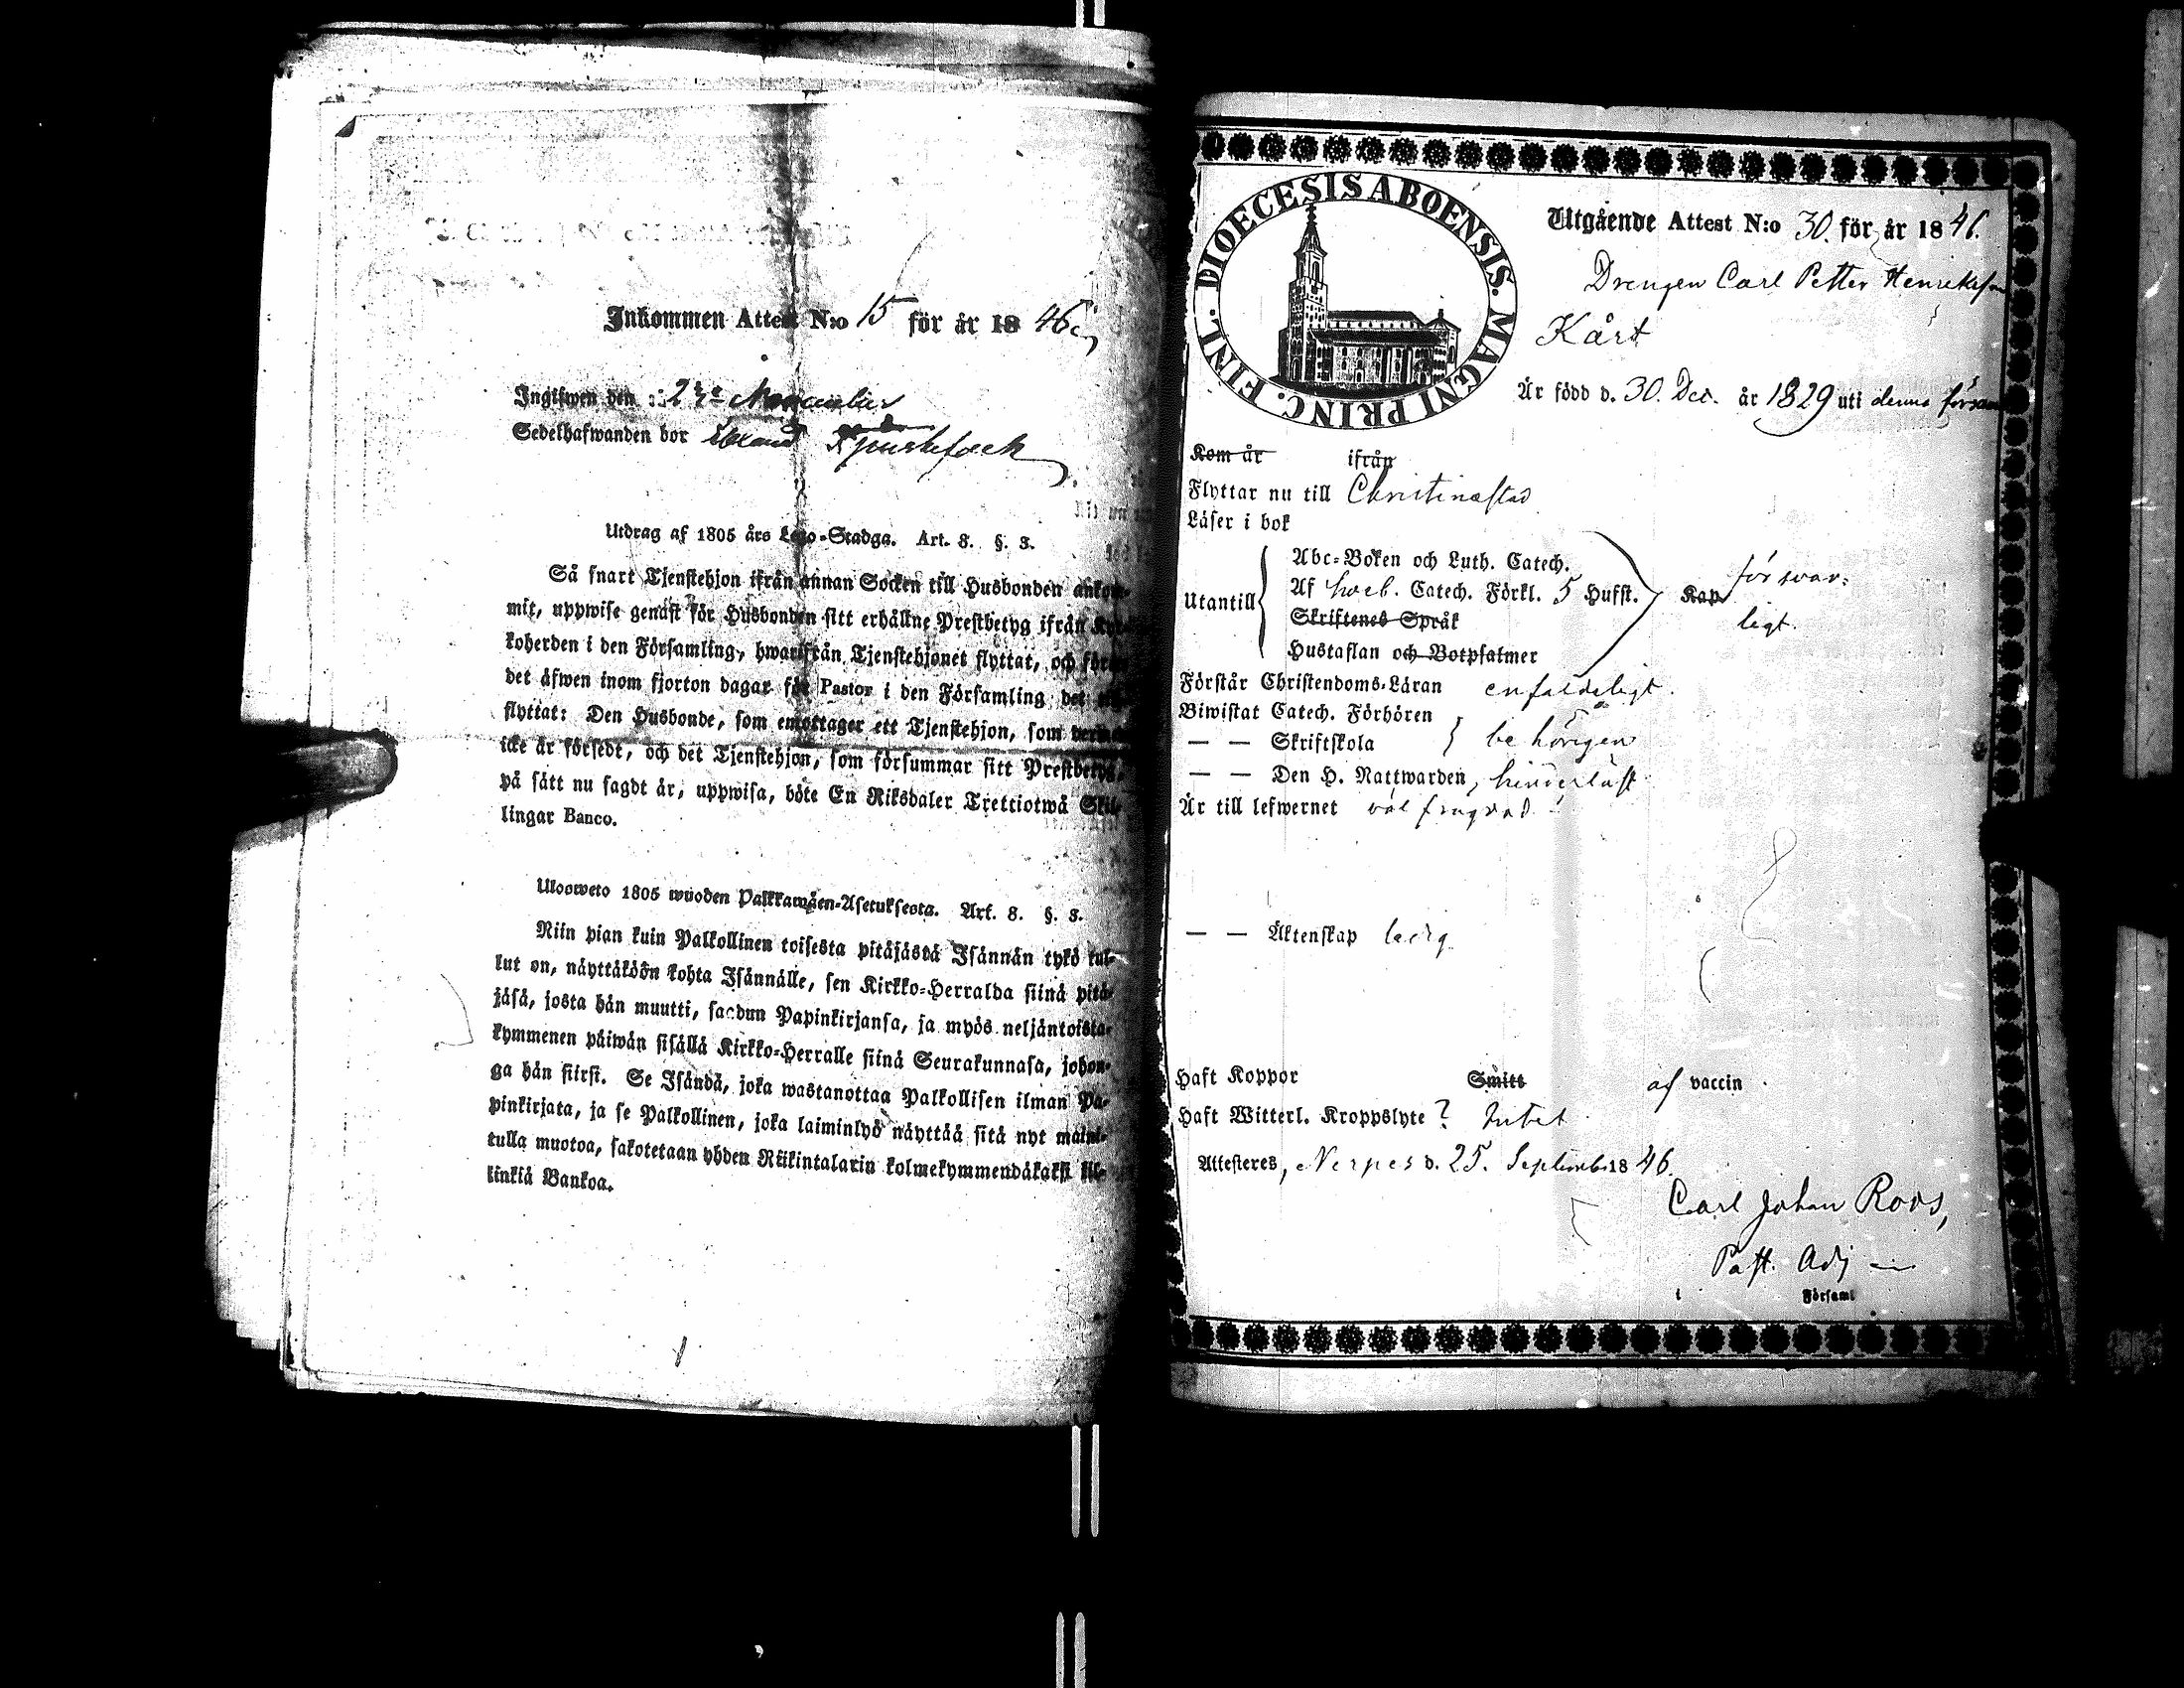 Inkommen Attest N:o 15 för år 1846
Ingifwen den November
Sedelhafwanden bor bland
Utdrag af 1805 års Lego-Stadga. Art. 8. §. 3.
Så snart Tjenstehjon ifrån annan Socken till Husbonden ankom-
mit, uppwise genast för Husbonden sitt erhållne Prestbetyg ifrån
koherden i den Församling, hwarifrån Tjenstehjonet flyttat, och
det äfwen inom fjorton dagar för Pastor i den Församling det
flyttat: Den Husbonde, som emottager ett Tjenstehjon, som
icke är försedt, och det Tjenstehjon, som försummar sitt Prestbetyg,
på sätt nu sagdt är, uppwisa, böte En Riksdaler Trettiotwå Skil-
lingar Banco.
Ulosweto 1805 wuoden Palkkawäen-Asetuksesta. Art. 8. §. 3.
Niin pian kuin Palkollinen toisesta pitäjästä Isännän tykö tul-
lut on, näyttäköön kohta Isännälle, sen Kirkko-Herralda siinä pitä-
jäsä, josta hän muutti, saadun Papinkirjansa, ja myös neljäntoista-
kymmenen päiwän sisällä Kirkko-Herralle siinä Seurakunnasa, johon-
ga hän siirsi. Se Isändä, joka wastanottaa Palkollisen ilman Pa-
pinkirjata, ja se Palkollinen, joka laiminlyö näyttää sitä nyt maini-
tulla muotoa, sakotetaan yhden Riikintalarin kolmekymmendäkaksi kil-
linkiä Bankoa.
DIOECESIS ABOENSIS. MAGNI PRINC. FINL.
Utgående Attest N:o 30. för år 1846.
Drengen Carl Petter Henriksson
Kårt
Är född d. 30. Dec. år 1829 uti denna försam
Kom år ifrån
Flyttar nu till Christinæstad
Läser i bok
Utantill
Abc-Boken och Luth. Catech.
Af Sveb. Catech. Förkl. 5 Hufst.
Skriftenes Språk
Hustaflan och Botpsalmer
Kap
försvar-
ligt.
Förstår Christendoms-Läran enfaldeligt.
Biwistat Catech. Förhören
— — Skriftskola behörigen
— — Den H. Nattwarden, hinderlöst
Är till lefwernet väl frägdad
— — Äktenskap ledig
Haft Koppor Smitt af vaccin
Haft Witterl. Kroppslyte? Intet
Attesteres, Nerpes d. 25. Septemb. 1846.
Carl Johan Roos,
Past. Adj
i Församl